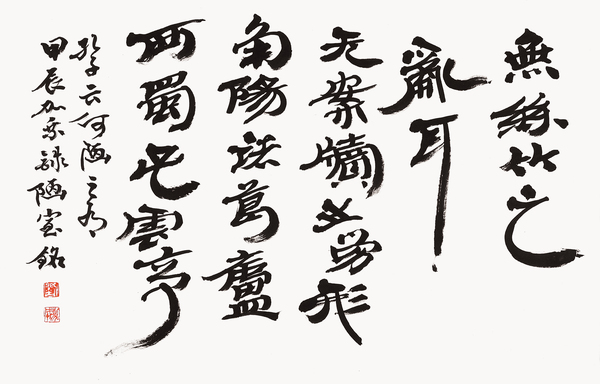 無絲竹之
亂耳
无案牘之勞形
南陽諸葛廬
西蜀子雲亭
孔子云何陋之有
甲辰錄陋室銘